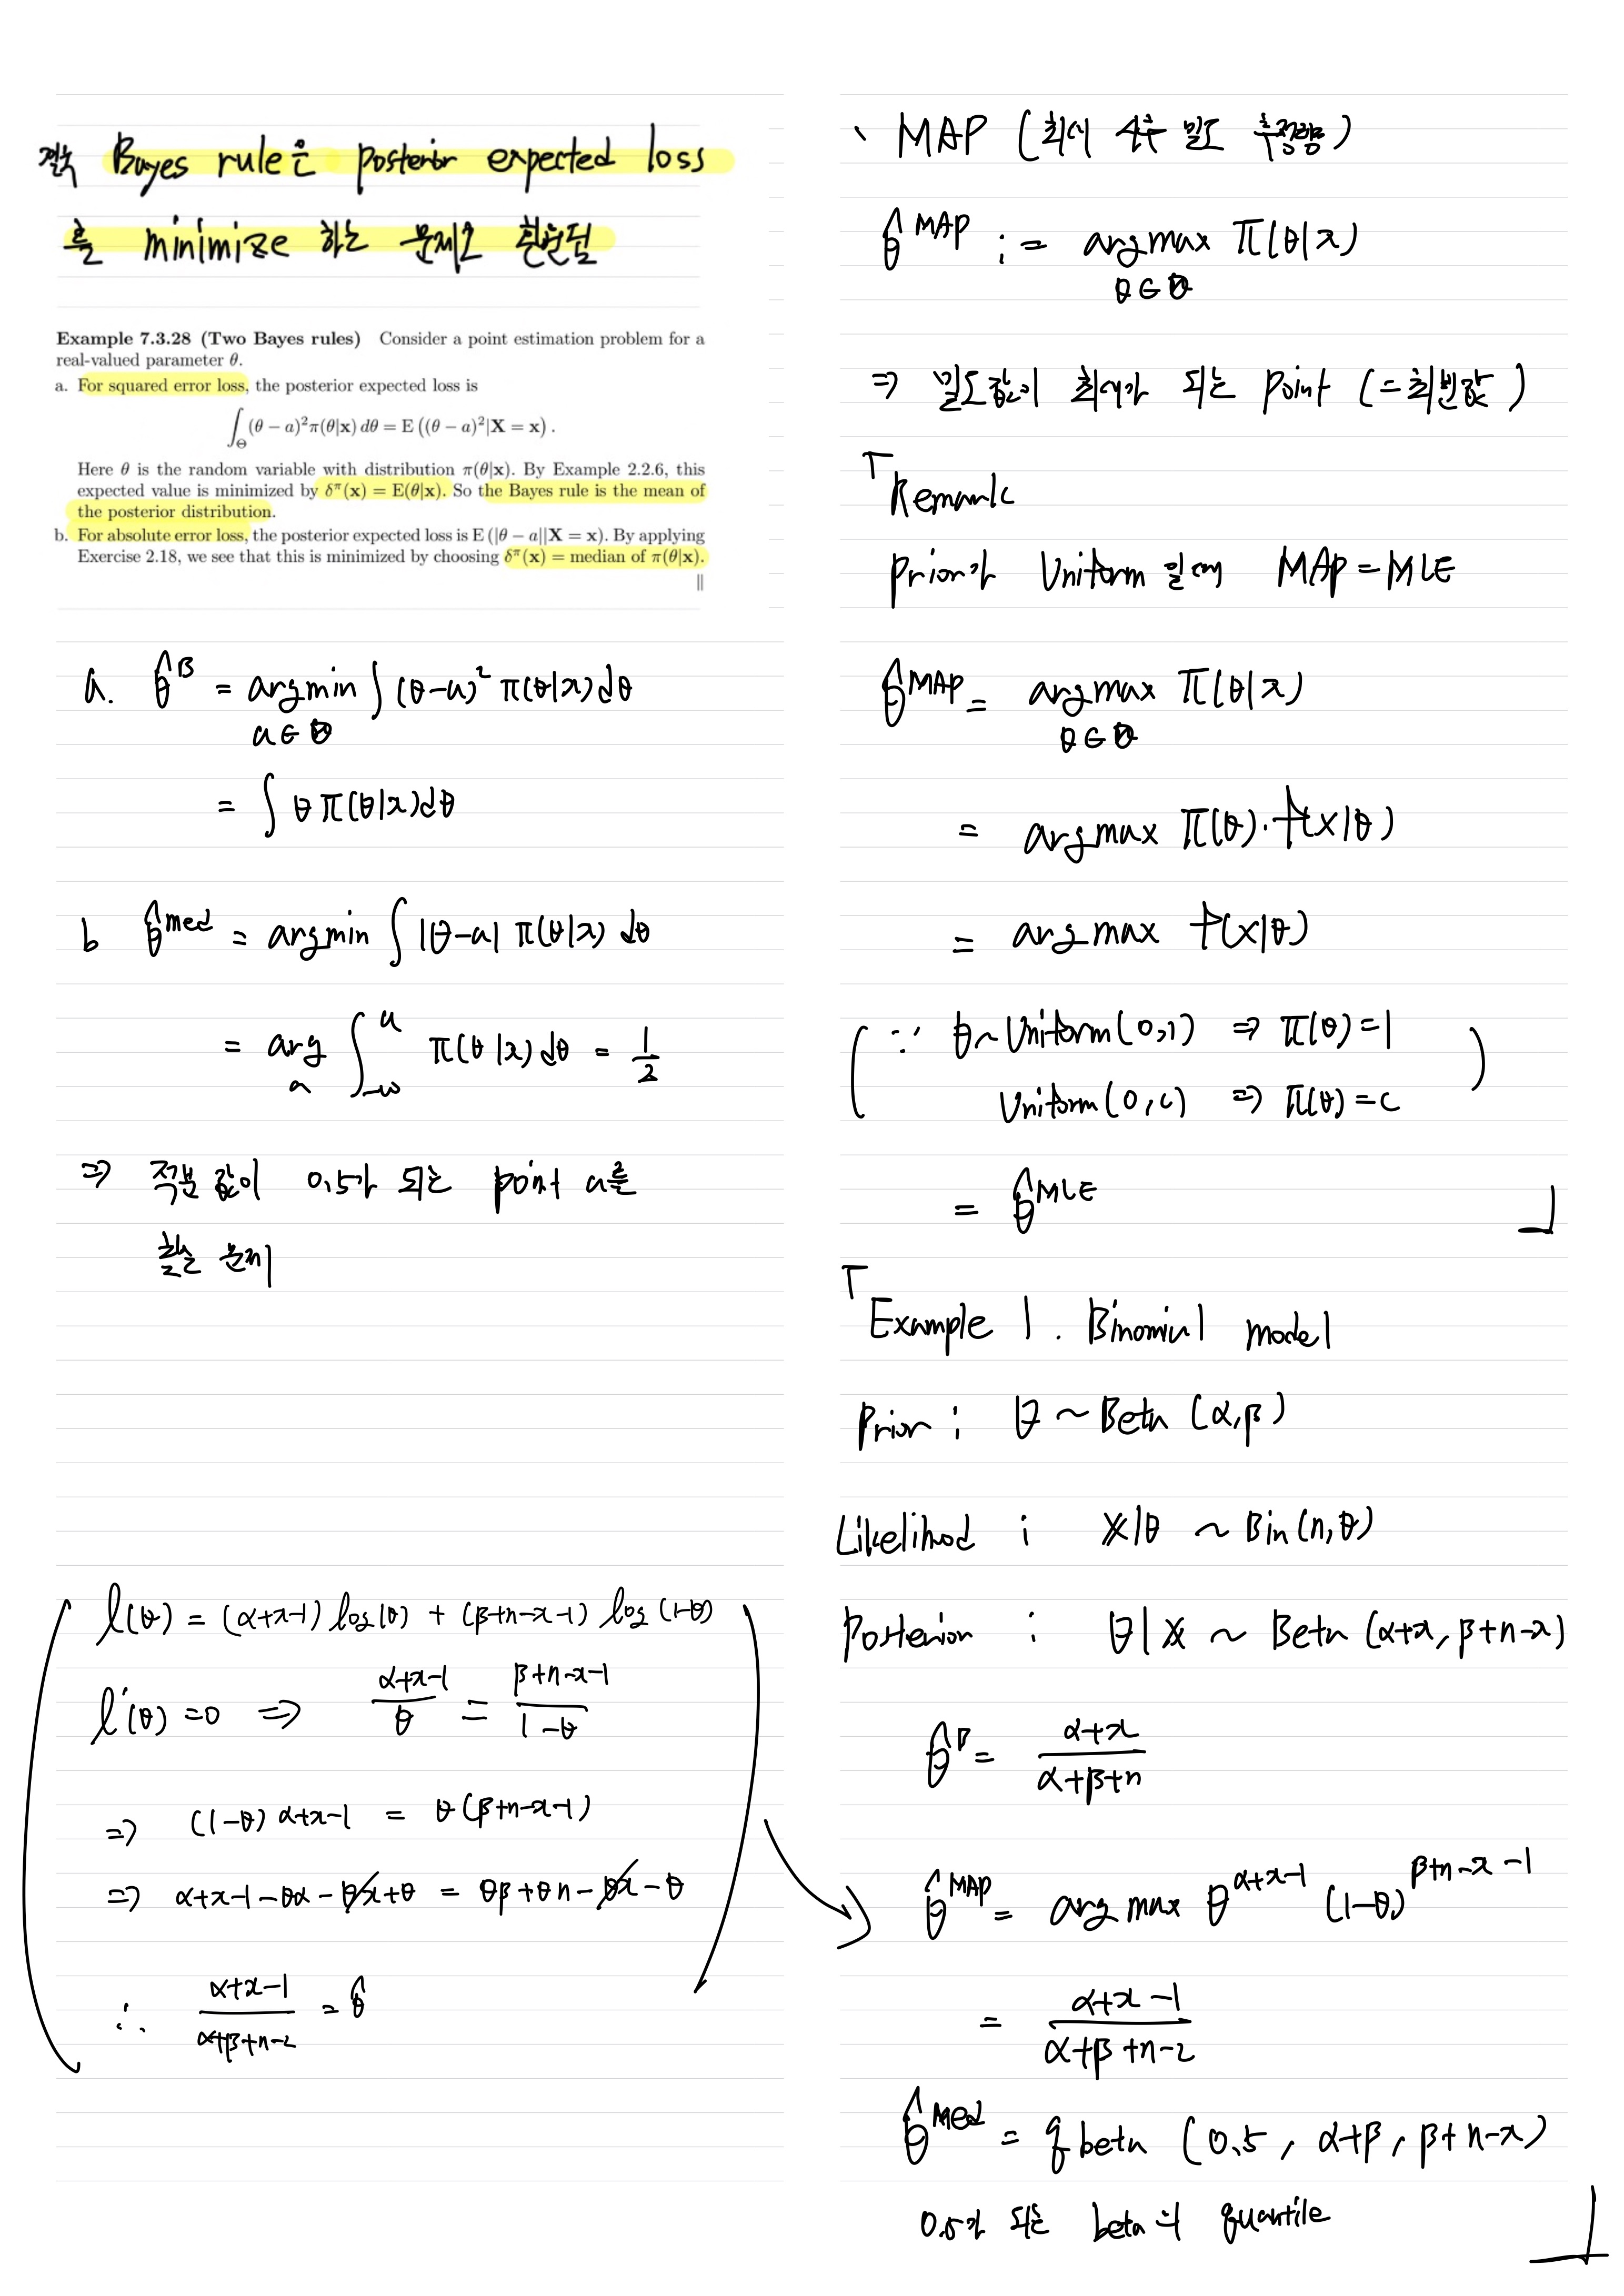 결국 Bayes rule은 posterior expected loss
를 minimize 하는 문제로 환원됨
Example 7.3.28 (Two Bayes rules) Consider a point estimation problem for a
real-valued parameter θ.
a. For squared error loss, the posterior expected loss is
∫_Θ (θ − a)²π(θ|x) dθ = E ((θ − a)²|X = x) .
Here θ is the random variable with distribution π(θ|x). By Example 2.2.6, this
expected value is minimized by δ^π(x) = E(θ|x). So the Bayes rule is the mean of
the posterior distribution.
b. For absolute error loss, the posterior expected loss is E (|θ − a||X = x). By applying
Exercise 2.18, we see that this is minimized by choosing δ^π(x) = median of π(θ|x).
||
a. θ̂^B = argmin ∫ (θ-a)² π(θ|x)dθ
a∈Θ
= ∫ θ π(θ|x)dθ
b θ̂^med = argmin ∫ |θ-a| π(θ|x) dθ
= arg_a ∫_{-∞}^{a} π(θ|x) dθ = 1/2
⇒ 적분 값이 0.5가 되는 point a를
찾는 문제
l(θ) = (α+x-1) log(θ) + (β+n-x-1) log (1-θ)
l'(θ) = 0 ⇒ (α+x-1)/θ = (β+n-x-1)/(1-θ)
⇒ (1-θ) α+x-1 = θ(β+n-x-1)
⇒ α+x-1-θα-θx+θ = θβ+θn-θx-θ
∴ (α+x-1)/(α+β+n-2) = θ̂
MAP (최대 사후 밀도 추정량)
θ̂^MAP := argmax π(θ|x)
θ∈Θ
⇒ 밀도값이 최대가 되는 point (=최빈값)
Remark
prior가 Uniform 일때 MAP = MLE
θ̂^MAP = argmax π(θ|x)
θ∈Θ
= argmax π(θ)·f(x|θ)
= argmax f(x|θ)
(∵ θ~Uniform(0,1) ⇒ π(θ)=1
Uniform(0,c) ⇒ π(θ)=c)
= θ̂^MLE
Example 1. Binomial model
Prior : θ ~ Beta (α,β)
Likelihood : X|θ ~ Bin(n,θ)
Posterior : θ|X ~ Beta (α+x, β+n-x)
θ̂^B = (α+x)/(α+β+n)
θ̂^MAP = argmax θ^{α+x-1} (1-θ)^{β+n-x-1}
= (α+x-1)/(α+β+n-2)
θ̂^Med = qbeta (0.5, α+β, β+n-x)
0.5가 되는 beta의 quantile